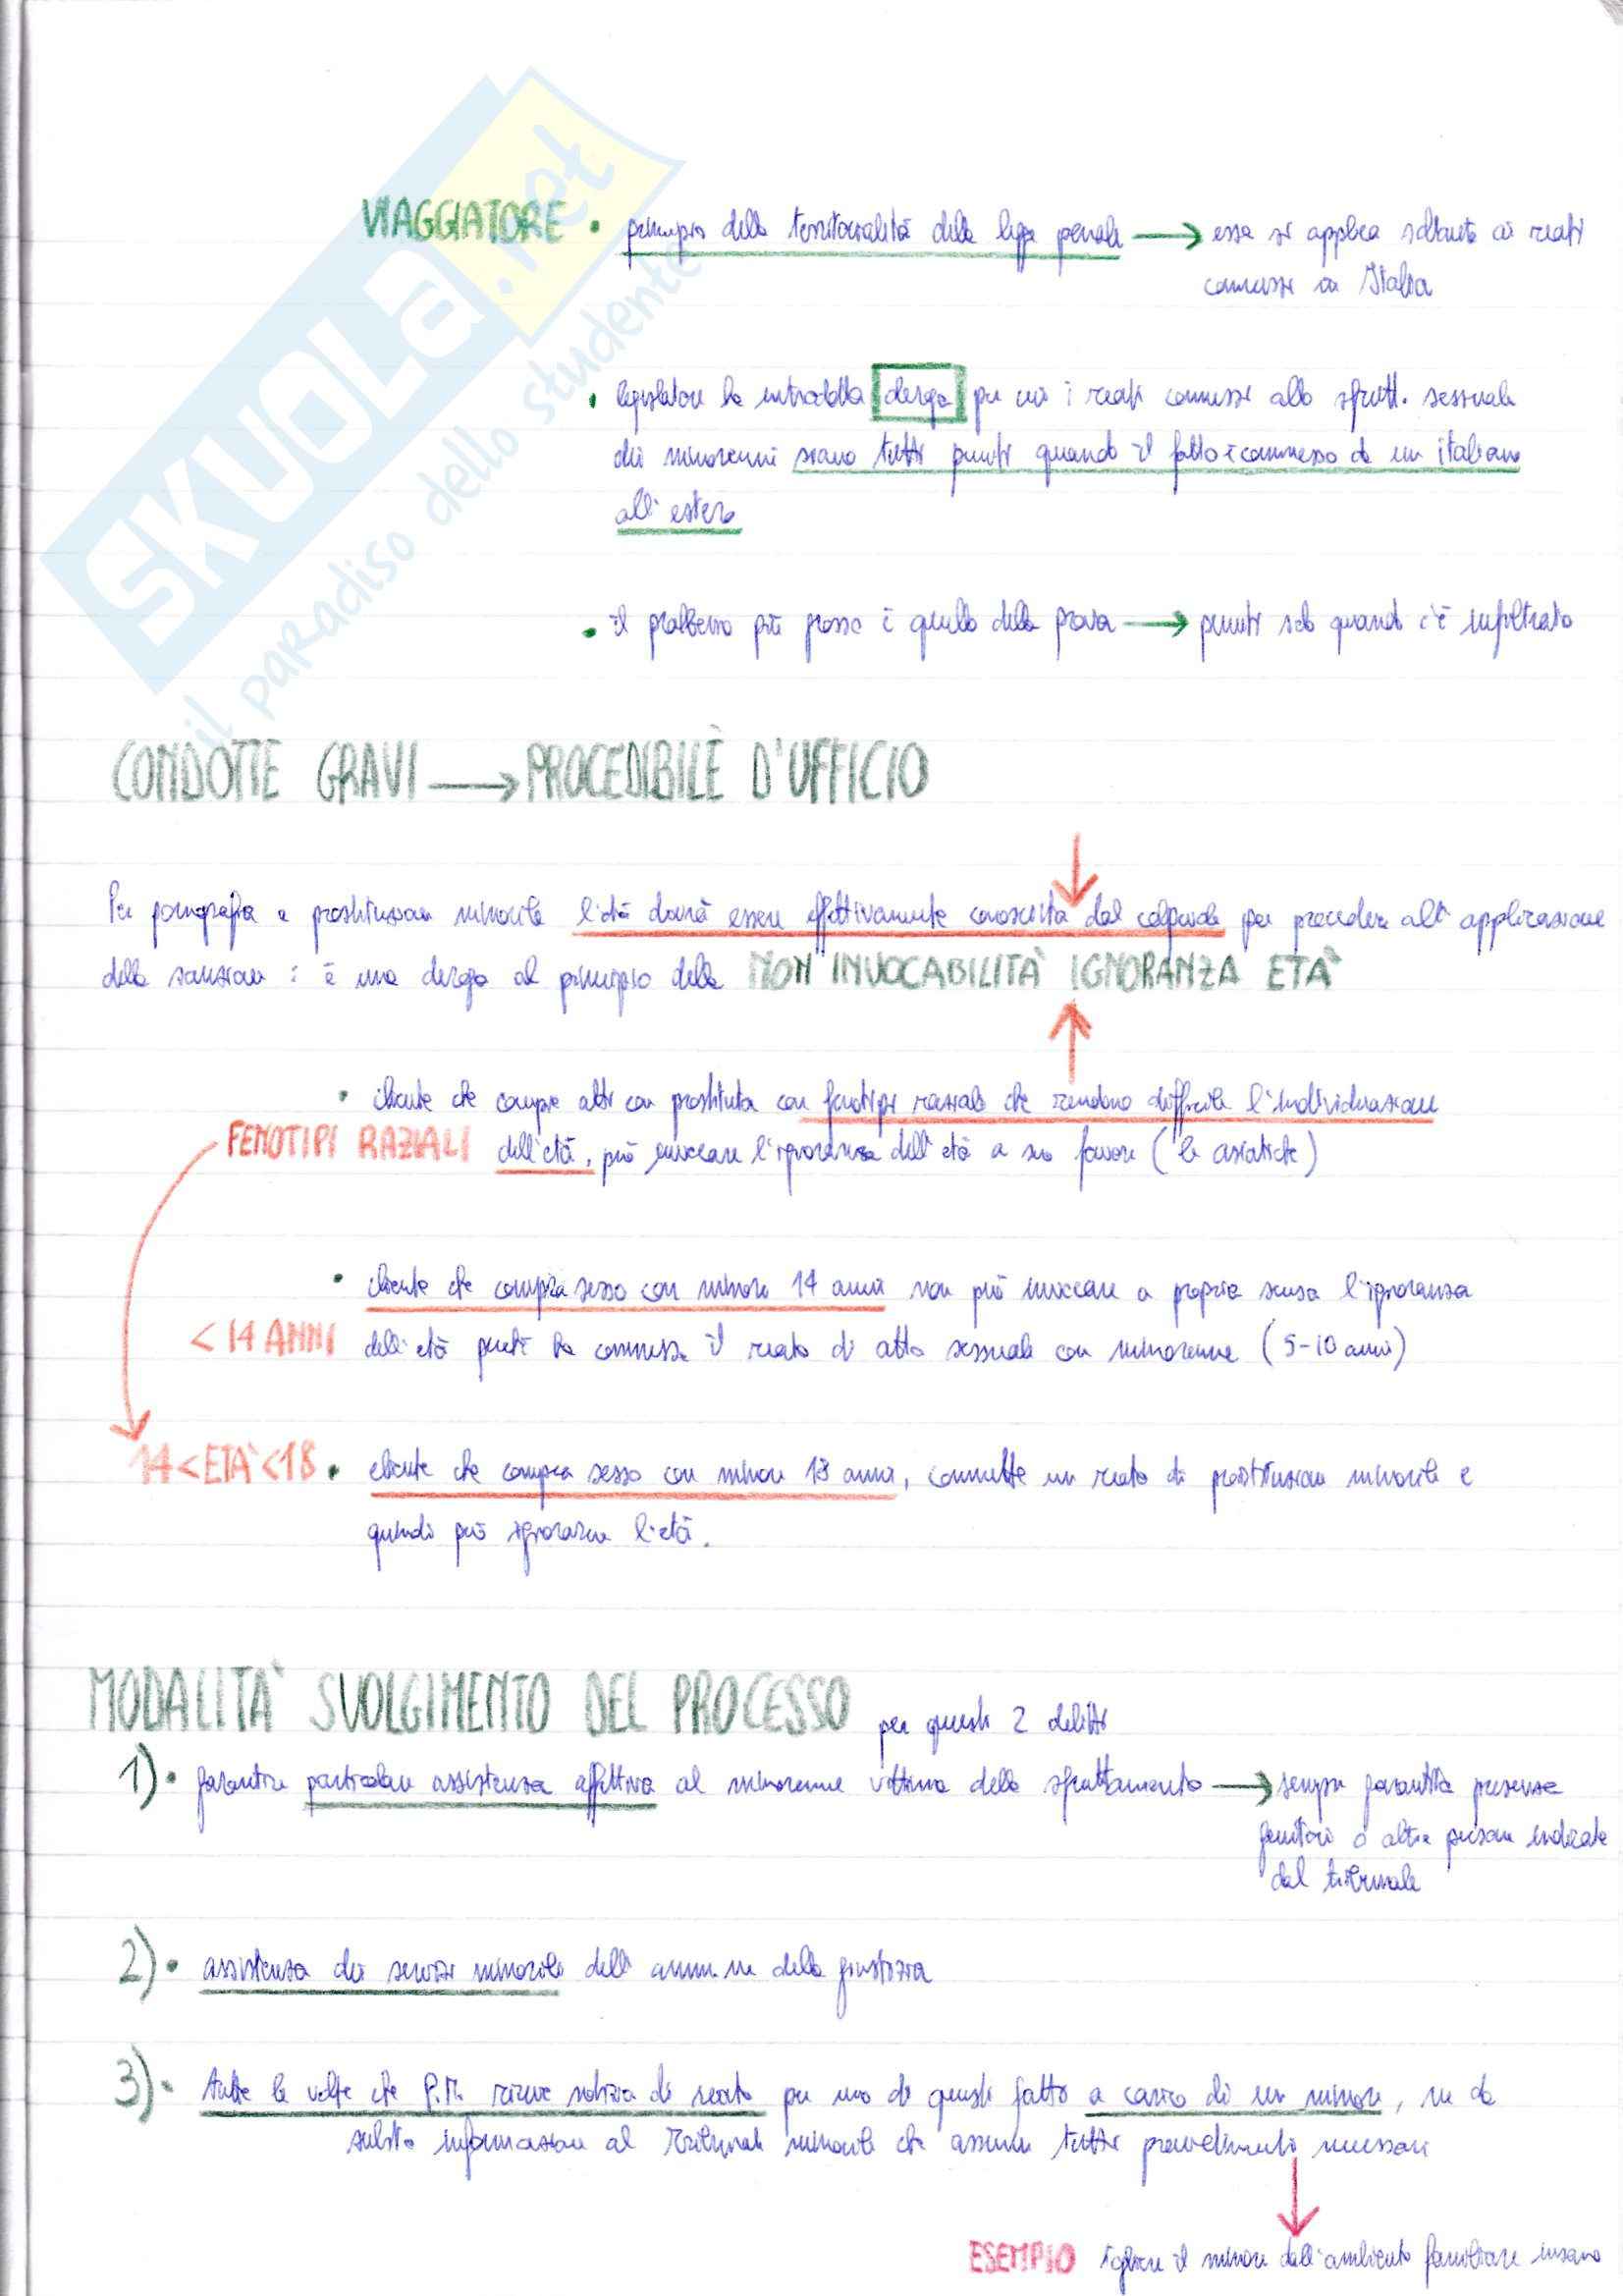 SKUOLA.net
il paradiso dello studente
VIAGGIATORE • principio della territorialità della legge penale → essa si applica soltanto ai reati
commessi in Italia
• legislatore ha introdotto deroga per cui i reati connessi allo sfrutt. sessuale
dei minorenni siano tutti puniti quando il fatto è commesso da un italiano
all'estero
• il problema più grosso è quello della prova → puniti solo quando c'è infiltrato
CONDOTTE GRAVI → PROCEDIBILE D'UFFICIO
Per pornografia e prostituzione minorile l'età dovrà essere effettivamente conosciuta dal colpevole per procedere all'applicazione
della sanzione: è una deroga al principio della NON INVOCABILITÀ IGNORANZA ETÀ
• cliente che compie atti con prostituta con fenotipi razziali che rendono difficile l'individuazione
FENOTIPI RAZIALI dell'età, può invocare l'ignoranza dell'età a suo favore (le asiatiche)
• cliente che compra sesso con minore 14 anni non può invocare a propria scusa l'ignoranza
< 14 ANNI dell'età perché ha commesso il reato di atto sessuale con minorenne (5-10 anni)
14 < ETÀ < 18 • cliente che compra sesso con minore 18 anni, commette un reato di prostituzione minorile e
quindi può ignorarne l'età.
MODALITÀ SVOLGIMENTO DEL PROCESSO per questi 2 delitti
1) • garantire particolare assistenza affettiva al minorenne vittima dello sfruttamento → sempre garantita presenza
genitori o altre persone indicate
dal tribunale
2) • assistenza dei servizi minorili dell'amm.ne della giustizia
3) • tutte le volte che P.M. riceve notizia di reato per uno di questi fatti a carico di un minore, ne dà
subito informazione al Tribunale minorile che assume tutti provvedimenti necessari
ESEMPIO togliere il minore dall'ambiente familiare insano